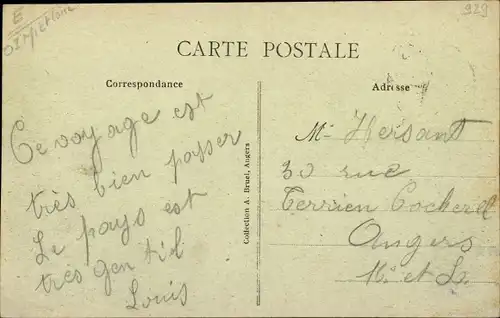 E
929
CARTE POSTALE
Correspondance
Adresse
Ce voyage est
très bien passer
Le pays est
tres gentil
Louis
Collection A. Bruel, Angers
Mr Hersant
30 rue
Terrien Cocherel
Angers
M. et L.